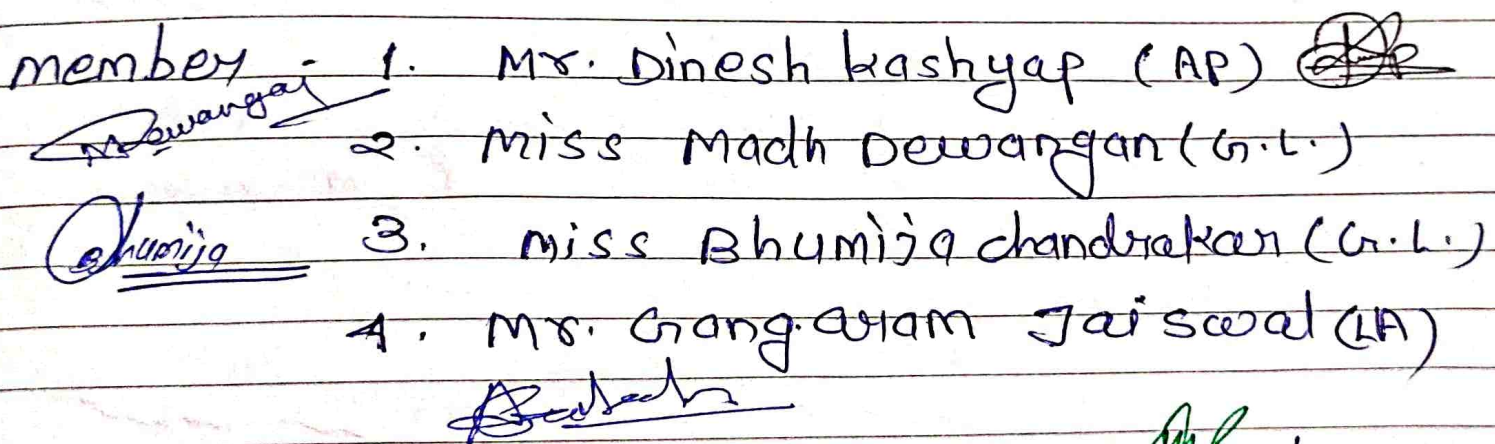 member - 1. Mr. Dinesh kashyap (AP)
Dewangan
2. Miss Madh Dewangan (G.L.)
Bhumija 3. Miss Bhumija chandrakar (G.L.)
4. Mr. Gangaram Jaiswal (LA)